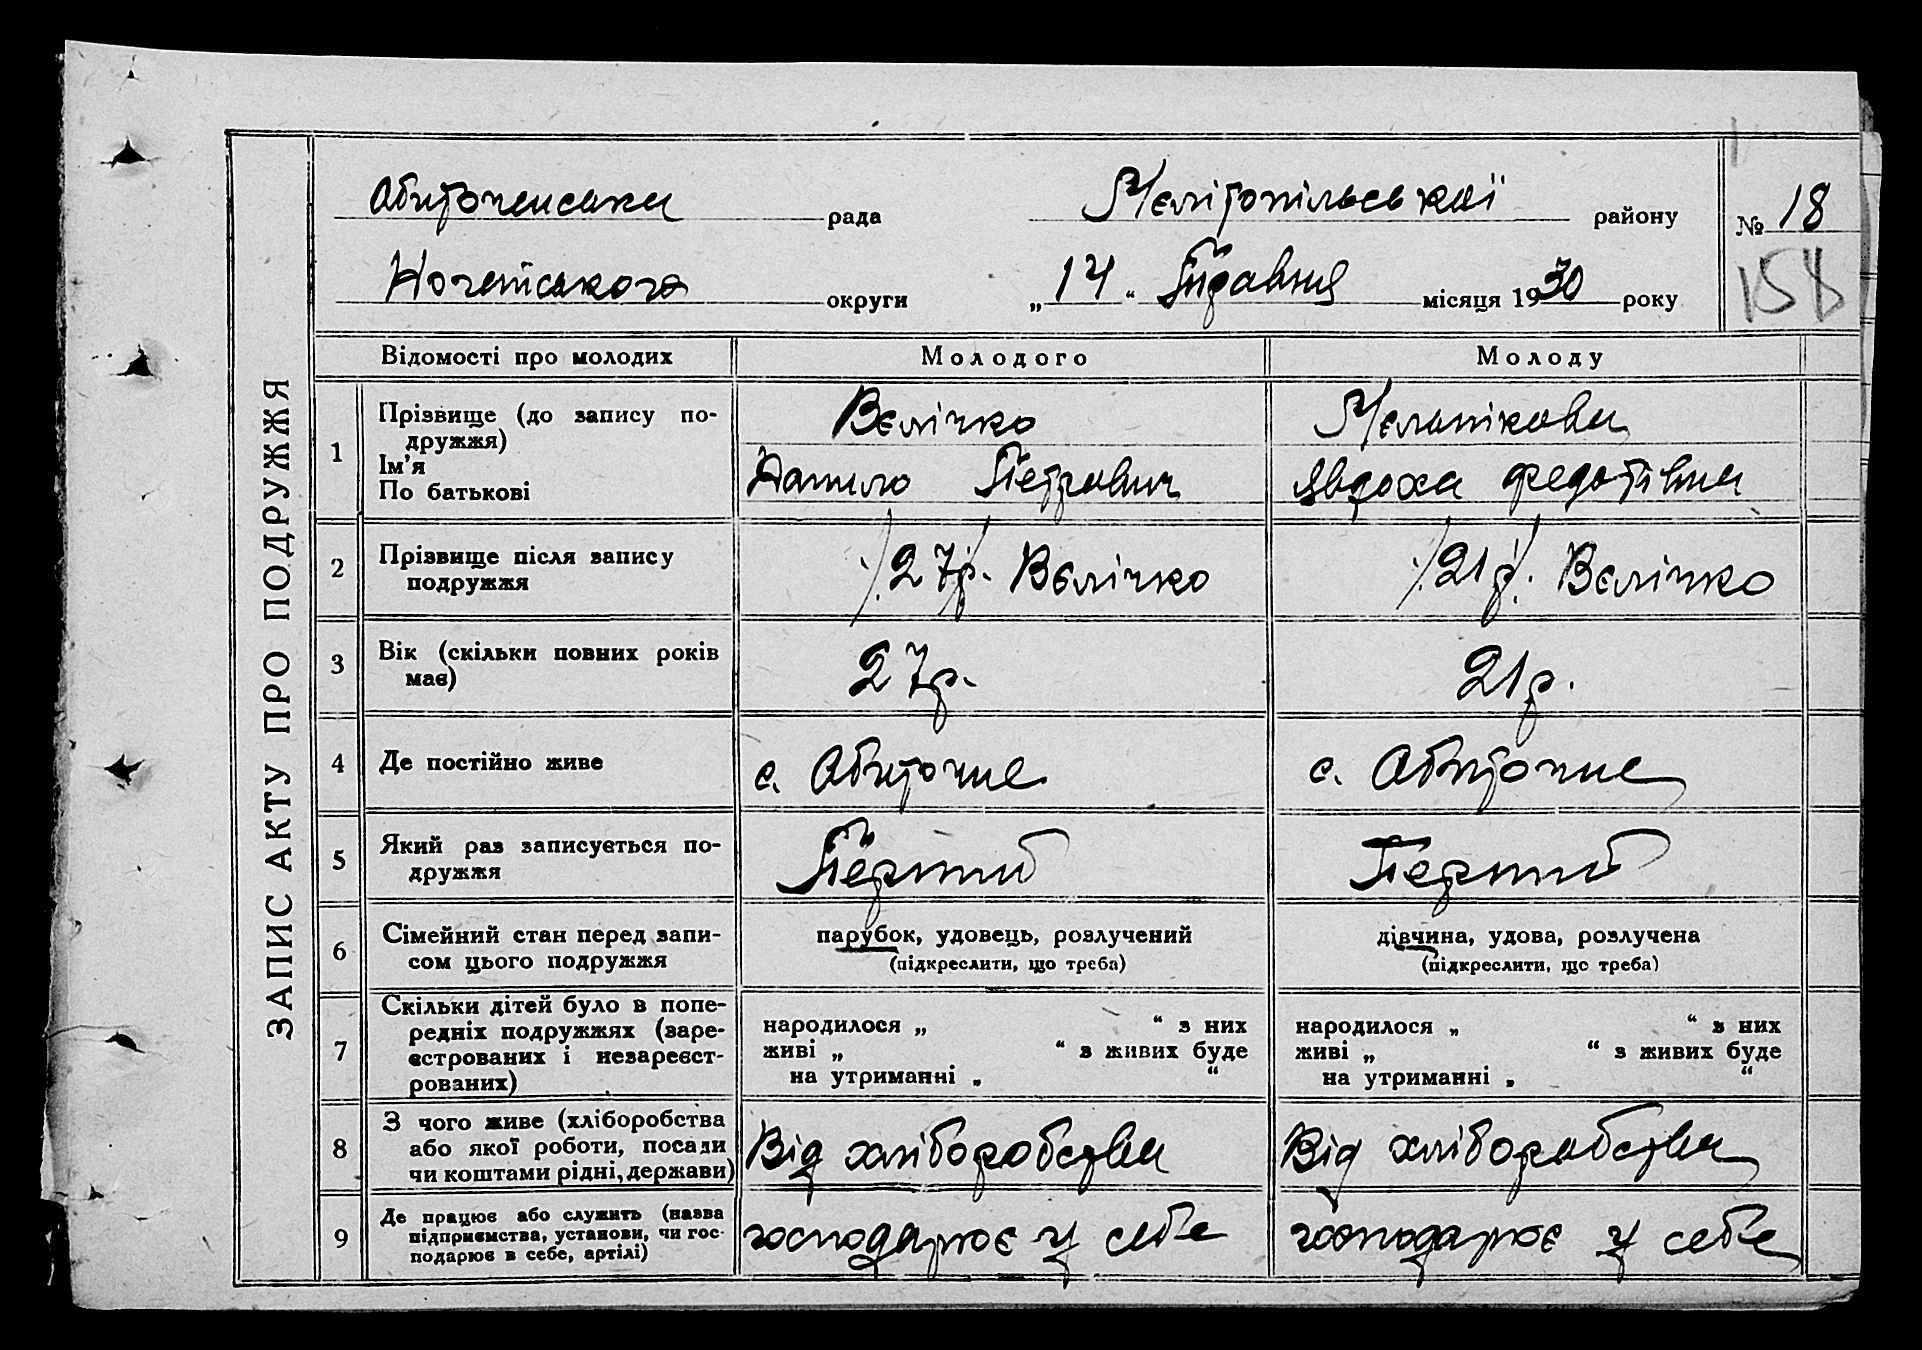 ЗАПИС АКТУ ПРО ПОДРУЖЖЯ
Обиточенська рада Мелітопільської району № 18
Ногайського округи „14“ Травня місяця 1930 року 158
Відомості про молодих Молодого Молоду
1 Прізвище (до запису по-
дружжя)
Ім'я
По батькові
Вєлічко
Данило Петрович
Мєльнікова
Явдоха Федотівна
2 Прізвище після запису
подружжя
/27р/. Вєлічко
/21р/. Вєлічко
3 Вік (скільки повних років
має)
27р.
21р.
4 Де постійно живе
с. Обиточне
с. Обиточне
5 Який раз записується по-
дружжя
Перший
Перший
6 Сімейний стан перед запи-
сом цього подружжя
парубок, удовець, розлучений
(підкреслити, що треба)
дівчина, удова, розлучена
(підкреслити, що треба)
7 Скільки дітей було в попе-
редніх подружжях (заре-
єстрованих і незареєст-
рованих)
народилося „ “ з них
живі „ “ з живих буде
на утриманні „ “
народилося „ “ з них
живі „ “ з живих буде
на утриманні „ “
8 З чого живе (хліборобства
або якої роботи, посади
чи коштами рідні, держави)
Від хліборобства
Від хліборобства
9 Де працює або служить (назва
підприємства, установи, чи гос-
подарює в себе, артілі)
господарює у себе
господарює у себе